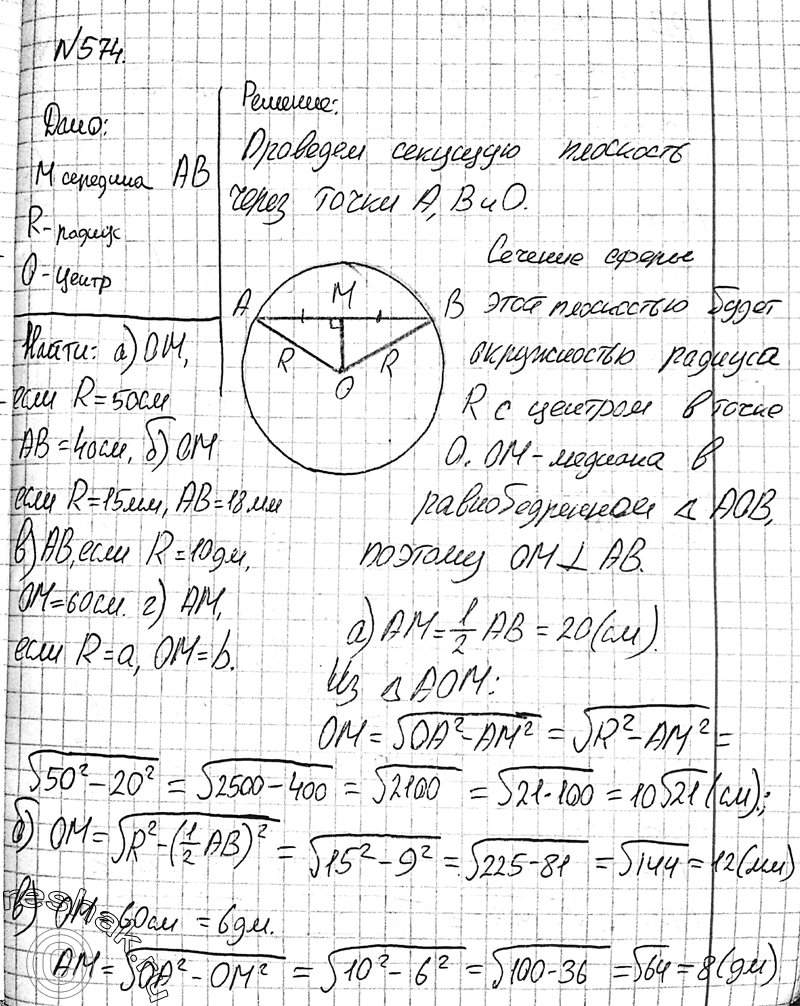 N574.
Дано:
М середина АВ
R-радиус
О-центр
Найти: а) ОМ,
если R=50см
АВ=40см, б) ОМ
если R=15мм, АВ=18мм
в) АВ, если R=10дм,
ОМ=60см. г) АМ,
если R=a, ОМ=b.
Решение:
Проведем секущую плоскость
через точки А, В и О.
A
M
B
R
R
O
Сечение сферы
этой плоскостью будет
окружностью радиуса
R с центром в точке
О. ОМ-медиана в
равнобедренном △ АОВ,
поэтому ОМ⊥АВ.
а) АМ=1/2 АВ = 20(см).
Из △ АОМ:
ОМ = √(ОА²-АМ²) = √(R²-АМ²) =
√(50²-20²) = √(2500-400) = √2100 = √(21·100) = 10√21 (см);
б) ОМ=√(R²-(1/2 АВ)²) = √(15²-9²) = √(225-81) = √144 = 12(мм)
в) ОМ=60см = 6дм.
АМ=√(ОА²-ОМ²) = √(10²-6²) = √(100-36) = √64 = 8(дм)
reshak.ru